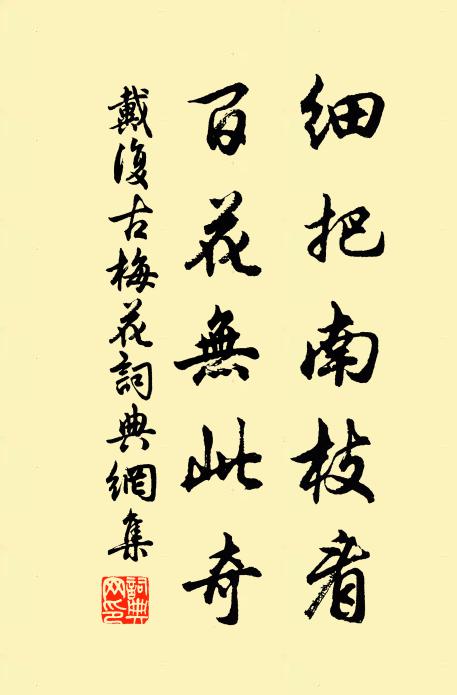 細把南枝看
百花無此奇
戴復古梅花詞典網集
詞典网印